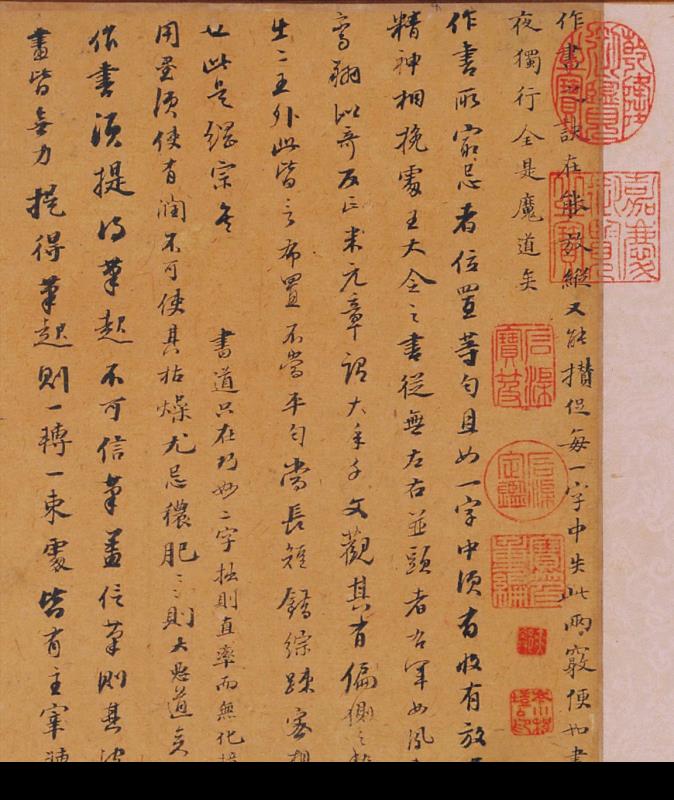 作書之訣在能放縱又能攢促每一字中失此兩竅便如晝
夜獨行全是魔道矣
作書所最忌者位置等勻且如一字中須有收有放有
精神相挽處王大令之書從無左右並頭者右軍如鳳翥
鸞翔似奇反正米元章謂大年千文觀其有偏側之勢
出二王外此皆言布置不當平勻當長短錯綜疎密相
此是宗矣
書道只在巧妙二字拙則直率而無化境
用墨須使有潤不可使其枯燥尤忌穠肥〻則大惡道矣
作書須提得筆起不可信筆蓋信筆則其波
畫皆無力提得筆起則一轉一束處皆有主宰轉
乾隆御覽之寶
嘉慶御覽之寶
石渠寶笈
石渠定鑑
寶笈重編